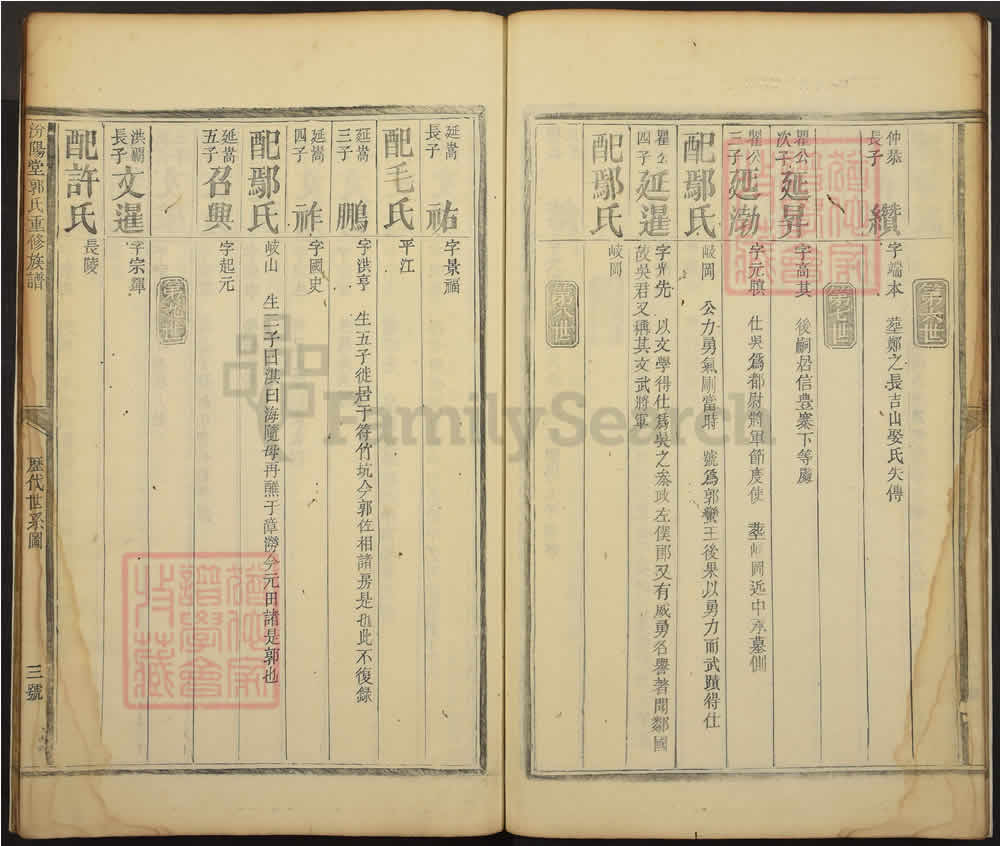 第六世
仲恭長子 纘 字端本 葬鄭之長吉山娶氏失傳
第七世
瞿公次子 延昇 字高其 後嗣居信豊寨下等處
瞿公三子 延渤 字元騏 仕吳爲都尉將軍節度使 葬岐岡近中丞墓側
配鄢氏 岐岡 公力勇氣剛當時 號爲郭蠻王後果以勇力而武蹟得仕
瞿公四子 延暹 字光先 以文學得仕爲吳之叅政左僕郎又有威勇名譽著聞鄰國
故吳君又稱其文武將軍
配鄢氏 岐岡
第八世
延嵩長子 祐 字景福
配毛氏 平江
延嵩三子 鵬 字洪亨 生五子徙居于符竹坑今郭佐相諸房是也此不復錄
延嵩四子 祚 字國史
配鄢氏 岐山 生二子曰淇曰海隨母再醮于漳澇今元田諸是郭也
延嵩五子 召興 字起元
洪禰長子 文暹 字宗輝
配許氏 長陵
汾陽堂郭氏重修族譜
歷代世系圖
三號
FamilySearch